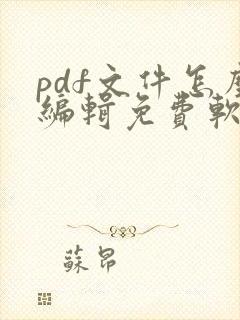 pdf文件怎麼
編輯免費軟
蘇昂